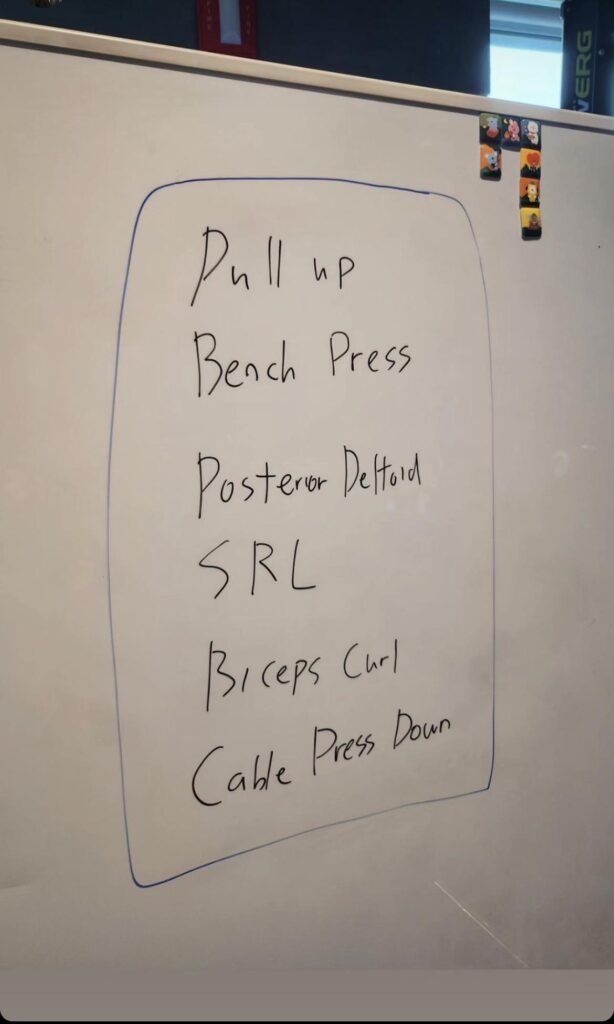 VERG
Pull up
Bench Press
Posterior Deltoid
SRL
Biceps Curl
Cable Press Down